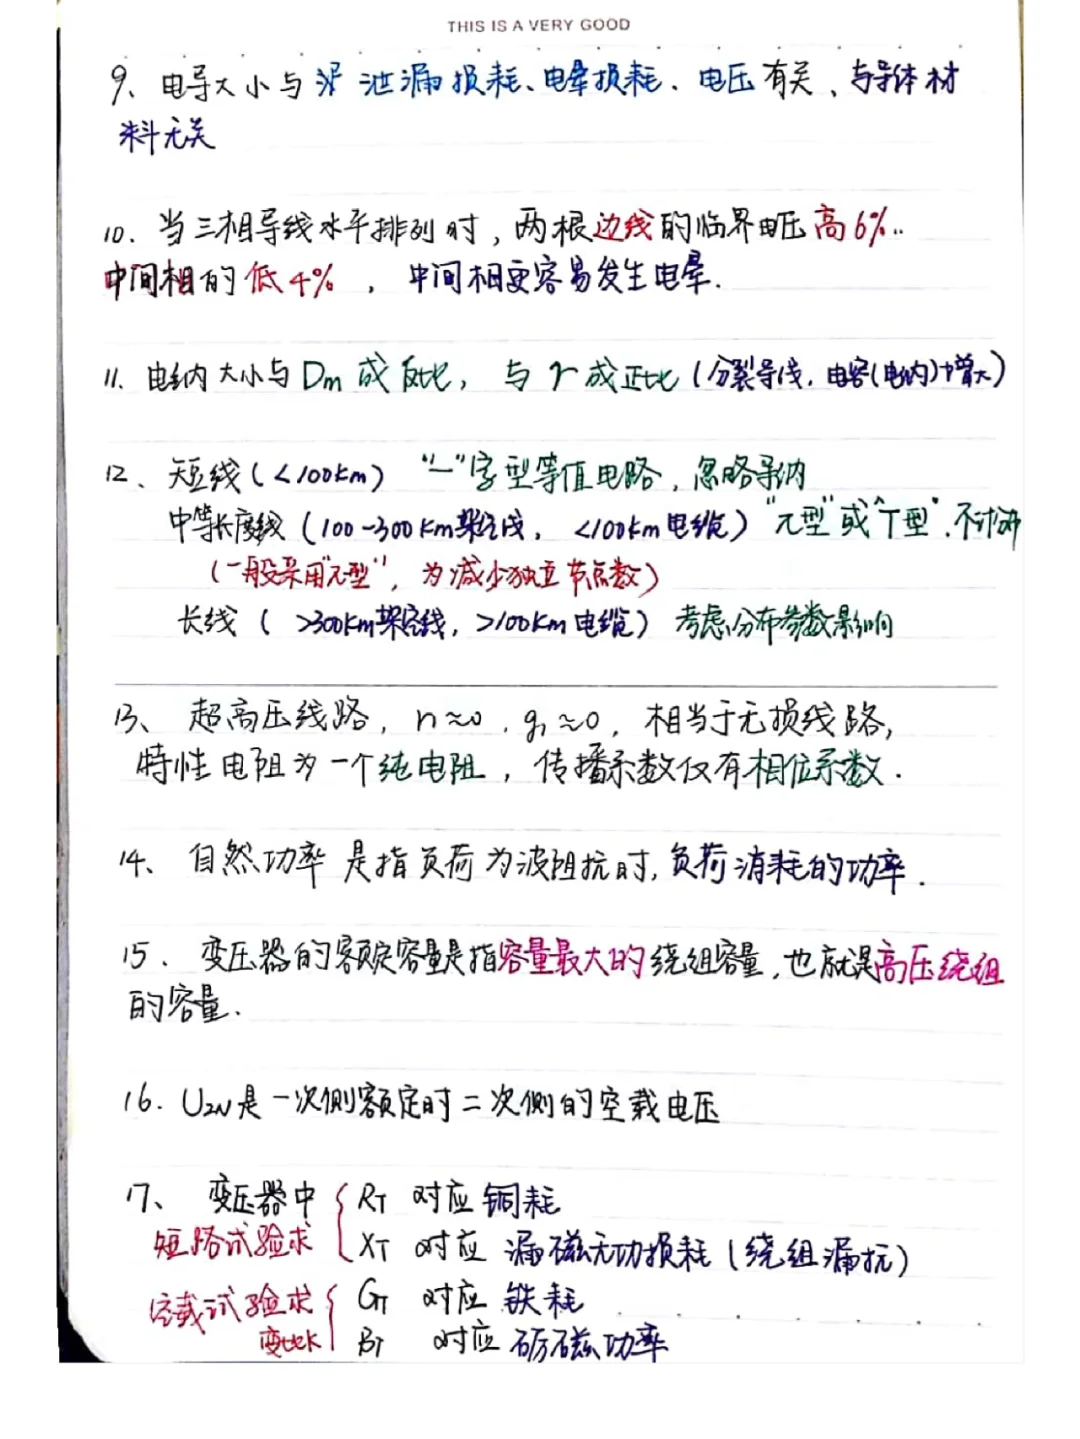 THIS IS A VERY GOOD
9、电导大小与 泄漏损耗、电晕损耗、电压有关、与导体材
料无关
10. 当三相导线水平排列时，两根边线的临界电压高6%..
中间相的低4%，中间相更容易发生电晕.
11. 电纳大小与Dm成反比，与r成正比(分裂导线，电容(电纳)增大)
12、短线(<100km) "一"字型等值电路，忽略导纳
中等长度线(100-300km架空线，<100km电缆) "π型"或"T型".
(一般采用"π型"，为减少独立节点数)
长线(>300km架空线，>100km电缆) 考虑分布参数影响
13、超高压线路，r1≈0，g1≈0，相当于无损线路，
特性电阻为一个纯电阻，传播系数仅有相位系数.
14、自然功率是指负荷为波阻抗时,负荷消耗的功率.
15、变压器的额定容量是指容量最大的绕组容量,也就是高压绕组
的容量.
16. U2N是一次侧额定时二次侧的空载电压
17、变压器中 { RT 对应 铜耗
短路试验求 XT 对应 漏磁无功损耗(绕组漏抗)
空载试验求 { GT 对应 铁耗
变比k BT 对应 励磁功率